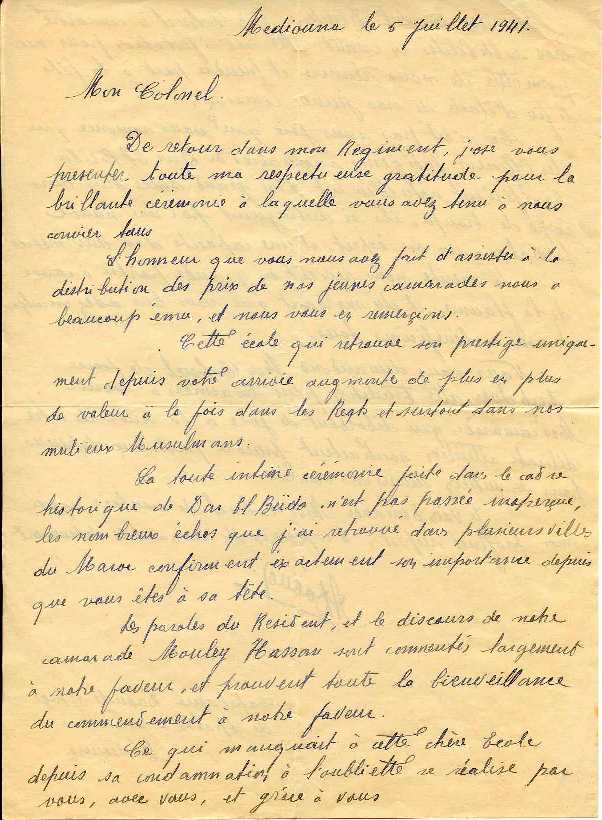 Mediouna le 5 Juillet 1941.
Mon Colonel.
De retour dans mon Regiment, j'ose vous
presenter toute ma respectueuse gratitude pour la
brillante cérémonie à laquelle vous avez tenu à nous
convier tous
L'honneur que vous nous avez fait d'assister à la
distribution des prix de nos jeunes camarades nous a
beaucoup ému, et nous vous en remerçions.
Cette école qui retrouve son prestige unique-
ment depuis votre arrivée augmente de plus en plus
de valeur à la fois dans les Regts et surtout dans nos
milieux Musulmans.
La toute intime cérémonie faite dans le cadre
historique de Dar El Beïda n'est pas passée inaperçue,
les nombreux échos que j'ai retrouvé dans plusieurs villes
du Maroc confirment exactement son importance depuis
que vous êtes à sa tête.
Les paroles du Resident, et le discours de notre
camarade Mouley Hassan sont commentés largement
à notre faveur, et prouvent toute la bienveillance
du commendement à notre faveur.
Ce qui manquait à cette chère Ecole
depuis sa condamnation à l'oubliette se réalise par
vous, avec vous, et grâce à vous